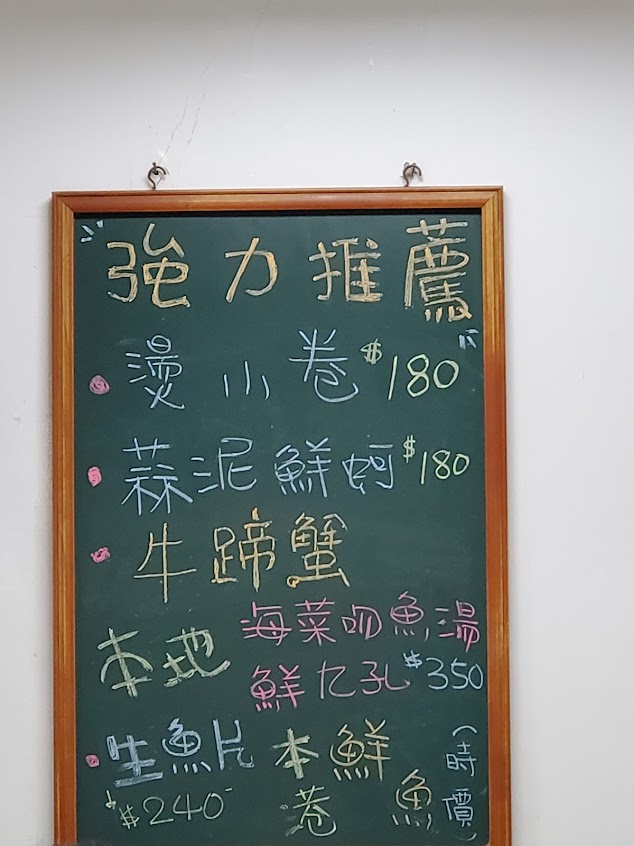 強力推薦
燙小卷 $180
蒜泥鮮蚵 $180
牛蹄蟹
本地
海菜吻魚湯
鮮九孔 $350
生魚片
$240
本鮮
巷魚
(時價)